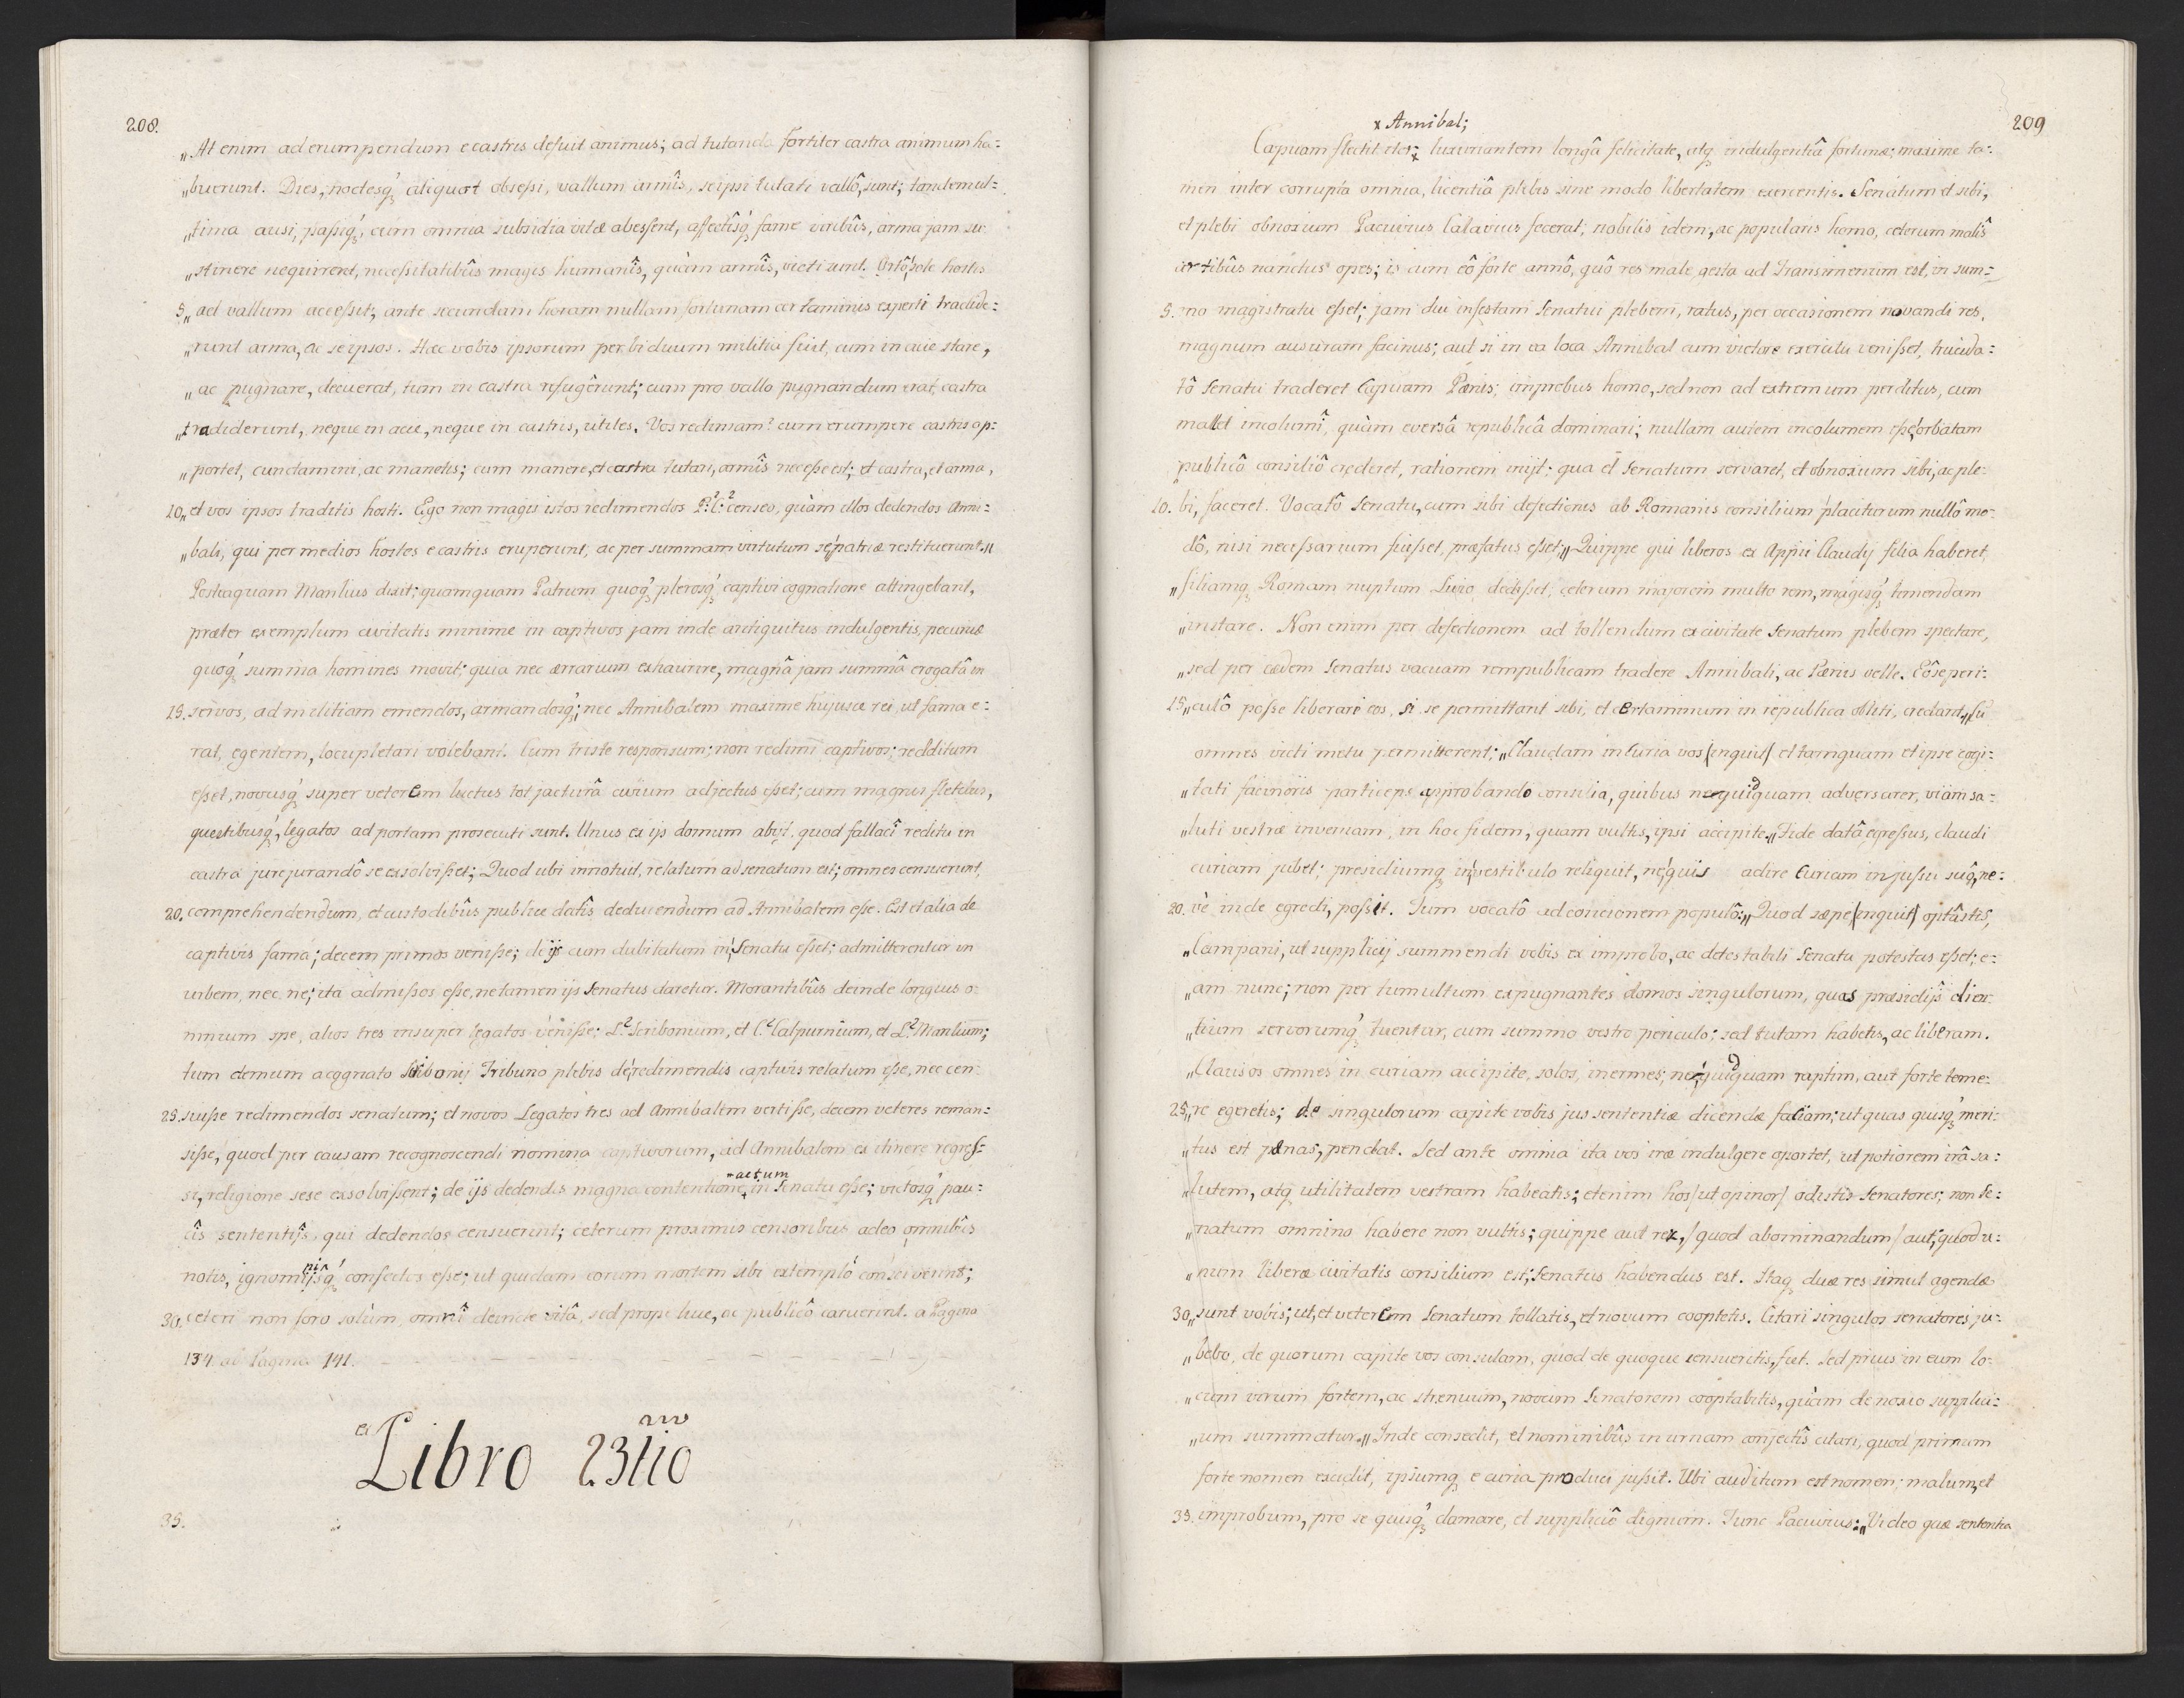 208.
„At enim ad erumpendum e castris defuit animus; ad tutanda fortiter castra animum ha:
„buerunt. Dies, noctesq́ꝫ aliquot obseſsi, vallum armîs, seipsi tutati vallô, sunt; tandem ul:
„tima ausi, paſsiq́ꝫ, cum omnia subsidia vitæ abeſsent, affectîsq́ꝫ fame viribûs, arma jam su:
„stinere nequirent, neceſsitatibûs magis humanîs, quàm armîs, victi sunt. Ortô sole hostis
5.„ad vallum acceſsit; ante secundam horam nullam fortunam certaminis experti tradide:
„runt arma, ac seipsos. Hæc vobis ipsorum per biduum militia fuit, cum in acie stare,
„ac pugnare, decuerat, tum in castra refugêrunt; cum pro vallo pugnandum erat, castra
„tradiderunt, neque in acie, neque in castris, utiles. Vos redimam? cum erumpere castris op:
„portet, cunctamini, ac manetis; cum manere, et castra tutari, armîs neceſse est; et castra, et arma,
10.„et vos ipsos traditis hosti. Ego non magis istos redimendos P.² C.² censeo, quàm illos dedendos Anni:
„bali, qui per medios hostes e castris eruperunt, ac per summam virtutum se patriæ restituerunt.„
Postaquam Manlius dixit; quamquam Patrum quoq́ꝫ plerosq́ꝫ captivi cognatione attingebant,
præter exemplum civitatis minime in captivos jam inde antiquitus indulgentis, pecuniæ
quoq́ꝫ summa homines movit; quia nec ærrarium exhaurire, magnâ jam summâ erogatâ in
15. servos, ad militiam emendos, armandosq́ꝫ; nec Annibalem maxime hujusce rei, ut fama e:
rat, egentem, locupletari volebant. Cum triste responsum; non redimi captivos; redditum
eſset, novusq́ꝫ super veterem luctus tot jacturâ civium adjectus eſset; cum magnis fletibus,
questibusq́ꝫ, legatos ad portam prosecuti sunt. Unus ex ijs domum abijt, quod fallaci reditu in
castra jurejurandô se exsolviſset; Quod ubi innotuit, relatum ad senatum est; omnes censuerunt,
20. comprehendendum, et custodibûs publice datîs deducendum ad Annibalem eſse. Est et alia de
captivis fama; decem primos veniſse; de ijs cum dubitatum in Senatu eſset; admitterentur in
urbem, nec ne; ita admiſsos eſse, ne tamen ijs Senatus daretur. Morantibûs deinde longius o:
mnium spe, alios tres insuper legatos veniſse; L.² Scribonium, et C.² Calpurnium, et L.² Manlium;
tum demum a cognato Scribonij Tribuno plebis de redimendis captivis relatum eſse, nec cen:
25. suiſse redimendos senatum; et novos Legatos tres ad Annibalem vertiſse, decem veteres reman:
siſse, quod per causam recognoscendi nomina captivorum, ad Annibalem ex itinere regreſ:
si, religione sese exsolviſsent; de ijs dedendis magna contentione, actum in Senatu eſse; victosq́ꝫ pau:
cîs sententijs, qui dedendos censuerint; ceterum proximis censoribus adeo omnibûs
notis, ignominijsq́ꝫ confectos eſse; ut quidam eorum mortem sibi extemplò consciverint;
30. ceteri non foro solùm, omnî deinde vitâ, sed prope luce, ac publicô caruerint. a Pagina
134. ad Pagina 141.
ex Libro 23tio
35.
209
x Annibal;
Capuam flectit iter; x luxuriantem longâ felicitate, atqꝫ indulgentiâ fortunæ; maxime ta:
men inter corrupta omnia, licentiâ plebis sine modo libertatem exercentis. Senatum et sibi,
et plebi obnoxium Pacuvius Calavius fecerat; nobilis idem, ac popularis homo, ceterum malîs
artibûs nanctus opes; is cum eô forte annô, quô res male gesta ad Transimenum est, in sum:
5. mo magistratu eſset; jam diu infestam Senatui plebem, ratus, per occasionem novandi res,
magnum ausuram facinus; aut si in ea loca Annibal cum victore exercitu veniſset, trucida:
tô Senatu traderet Capuam Pœnis; improbus homo, sed non ad extremum perditus, cum
mallet incolumî, quàm eversâ republicâ dominari; nullam autem incolumem eſse, orbatam
publicô consiliô crederet, rationem inijt; qua et Senatum servaret, et obnoxium sibi, ac ple:
10. bi, faceret. Vocatô Senatu, cum sibi defectionis ab Romanis consilium placiturum nullô mo:
dô, nisi neceſsarium fuiſset, præfatus eſset; „Quippe qui liberos ex Appii Claudij filia haberet,
„filiamqꝫ Romam nuptum Livio dediſset; ceterum majorem multo rem, magisq́ꝫ timendam
„instare. Non enim per defectionem ad tollendum ex civitate Senatum plebem spectare,
„sed per cædem Senatus vacuam rempublicam tradere Annibali, ac Pœnis velle. Eô se peri:
15.„culô poſse liberare eos, si se permittant sibi, et certaminum in republica obliti, credant„ Cu
omnes victi metu permitterent; „Claudam in Curia vos /inquit/ et tamquam et ipse cogi:
„tati facinoris particeps approbando consilia, quibus nequidquam adversarer, viam sa:
„luti vestræ inveniam, in hoc fidem, quam vultis, ipsi accipite.„ Fide datâ egreſsus, claudi
curiam jubet; presidiumqꝫ in vestibulo reliquit, ne quis adire Curiam injuſsu suô, ne:
20. ve inde egredi, poſsit. Tum vocatô ad concionem populô; „Quod sæpe /inquit/ optâstis,
„Campani, ut supplicij summendi vobis ex improbo, ac detestabili Senatu potestas eſset; e:
„am nunc; non per tumultum expugnantes domos singulorum, quas præsidijs clien:
„tium servorumq́ꝫ tuentur, cum summo vestro periculo; sed tutam habetis, ac liberam.
„Clausos omnes in curiam accipite, solos, inermes; nequidquam raptim, aut forte teme:
25.„re egeretis; de singulorum capite vobis jus sententiæ dicendæ faciam; ut quas quisq́ꝫ meri:
„tus est pœnas, pendat. Sed ante omnia ita vos iræ indulgere oportet, ut potiorem irâ sa:
„lutem, atqꝫ utilitatem vestram habeatis; etenim hos /ut opinor/ odistis Senatores; non Se:
„natum omnino habere non vultis; quippe aut rex, /quod abominandum/ aut, quod u:
„num liberæ civitatis consilium est; Senatus habendus est. Itaqꝫ duæ res simul agendæ
30.„sunt vobis; ut, et veterem Senatum tollatis, et novum cooptetis. Citari singulos senatores ju:
„bebo, de quorum capite vos consulam, quod de quoque censueritis, fiet. Sed prius in eum lo:
„cum virum fortem, ac strenuum, novum Senatorem cooptabitis, quàm de noxio supplici:
„um summatur.„ Inde consedit, et nominibûs in urnam conjectîs citari, quod primum
forte nomen excidit, ipsumqꝫ e curia produci juſsit. Ubi auditum est nomen; malum, et
35. improbum, pro se quisq́ꝫ clamare, et suppliciô dignum. Tunc Pacuvius; „Video quæ sententia